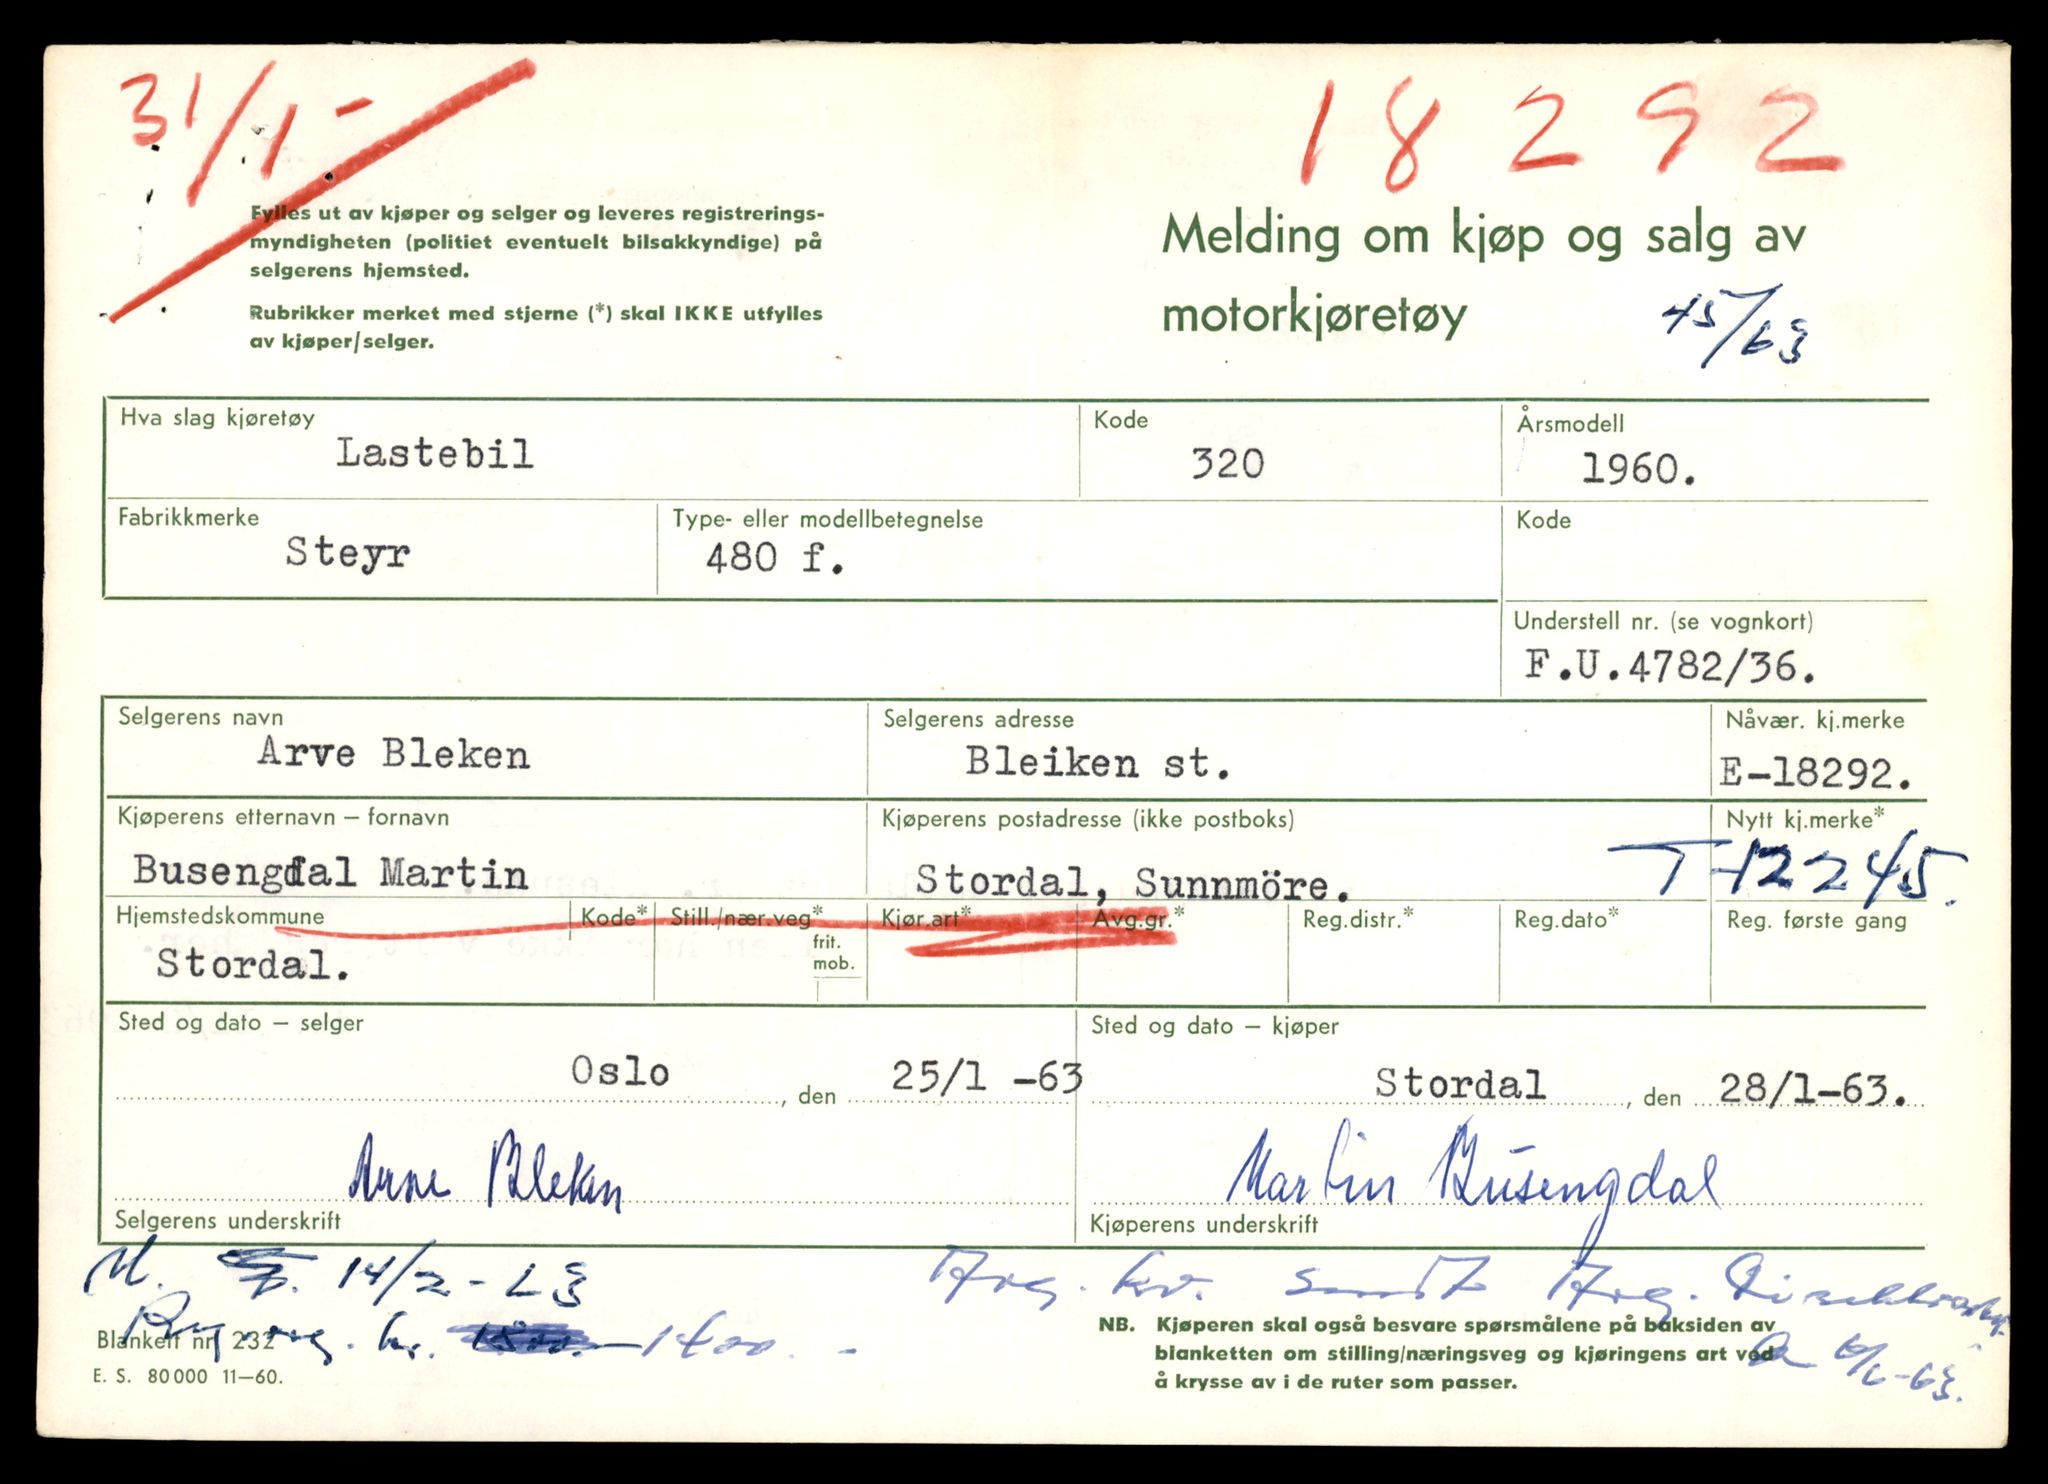 31/1-
18292
Fylles ut av kjøper og selger og leveres registrerings-
myndigheten (politiet eventuelt bilsakkyndige) på
selgerens hjemsted.
Rubrikker merket med stjerne (*) skal IKKE utfylles
av kjøper/selger.
Melding om kjøp og salg av
motorkjøretøy
45/63
Hva slag kjøretøy Kode Årsmodell
Lastebil 320 1960.
Fabrikkmerke Type- eller modellbetegnelse Kode
Steyr 480 f.
Understell nr. (se vognkort)
F.U.4782/36.
Selgerens navn Selgerens adresse Nåvær. kj.merke
Arve Bleken Bleiken st. E-18292.
Kjøperens etternavn – fornavn Kjøperens postadresse (ikke postboks) Nytt kj.merke*
Busengdal Martin Stordal, Sunnmöre. T-12245.
Hjemstedskommune Kode* Still./nær.veg* Kjør.art* Avg.gr.* Reg.distr.* Reg.dato* Reg. første gang
frit.
mob.
Stordal.
Sted og dato – selger Sted og dato – kjøper
Oslo, den 25/1 -63 Stordal, den 28/1-63.
Arne Bleken Martin Busengdal
Selgerens underskrift Kjøperens underskrift
M. 14/2-63 Avg. kv. sendt Avg.
avg. kr. 1400.-
Blankett nr. 232
E. S. 80000 11–60.
NB. Kjøperen skal også besvare spørsmålene på baksiden av
blanketten om stilling/næringsveg og kjøringens art ved
å krysse av i de ruter som passer.